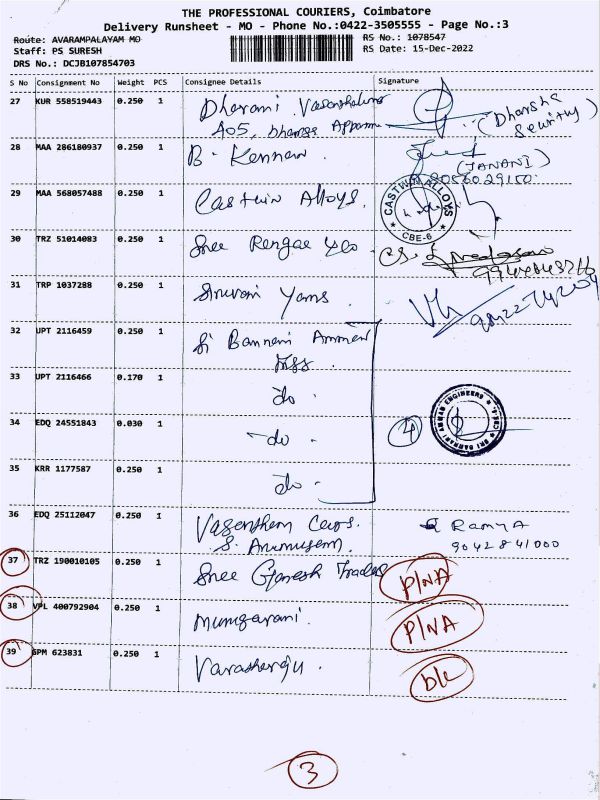 THE PROFESSIONAL COURIERS, Coimbatore
Delivery Runsheet - MO - Phone No.:0422-3505555 - Page No.:3
Route: AVARAMPALAYAM MO
RS No.: 1078547
Staff: PS SURESH
RS Date: 15-Dec-2022
DRS No.: DCJB107854703
S No Consignment No Weight PCS Consignee Details Signature
27 KUR 558519443 0.250 1 Dharani
A05, (Dharsha Security)
28 MAA 286180937 0.250 1 B. (JANANI)
8056029150
29 MAA 568057488 0.250 1 Castwin Alloys. CASTWIN ALLOYS CBE-6
30 TRZ 51014083 0.250 1 Sree Rengae
31 TRP 1037288 0.250 1 Siruvani Yarns
32 UPT 2116459 0.250 1 Sri Bannari Amman
33 UPT 2116466 0.170 1 do.
34 EDQ 24551843 0.030 1 - do - 4 SRI BANNARI AMMAN ENGINEERS
35 KRR 1177587 0.250 1 do -
36 EDQ 25112047 0.250 1 Vasantham Cars. Ramya
S. 9042841000
37 TRZ 190010105 0.250 1 Sree Ganesh Traders P/NA
38 VPL 400792904 0.250 1 P/NA
39 GPM 623831 0.250 1
3